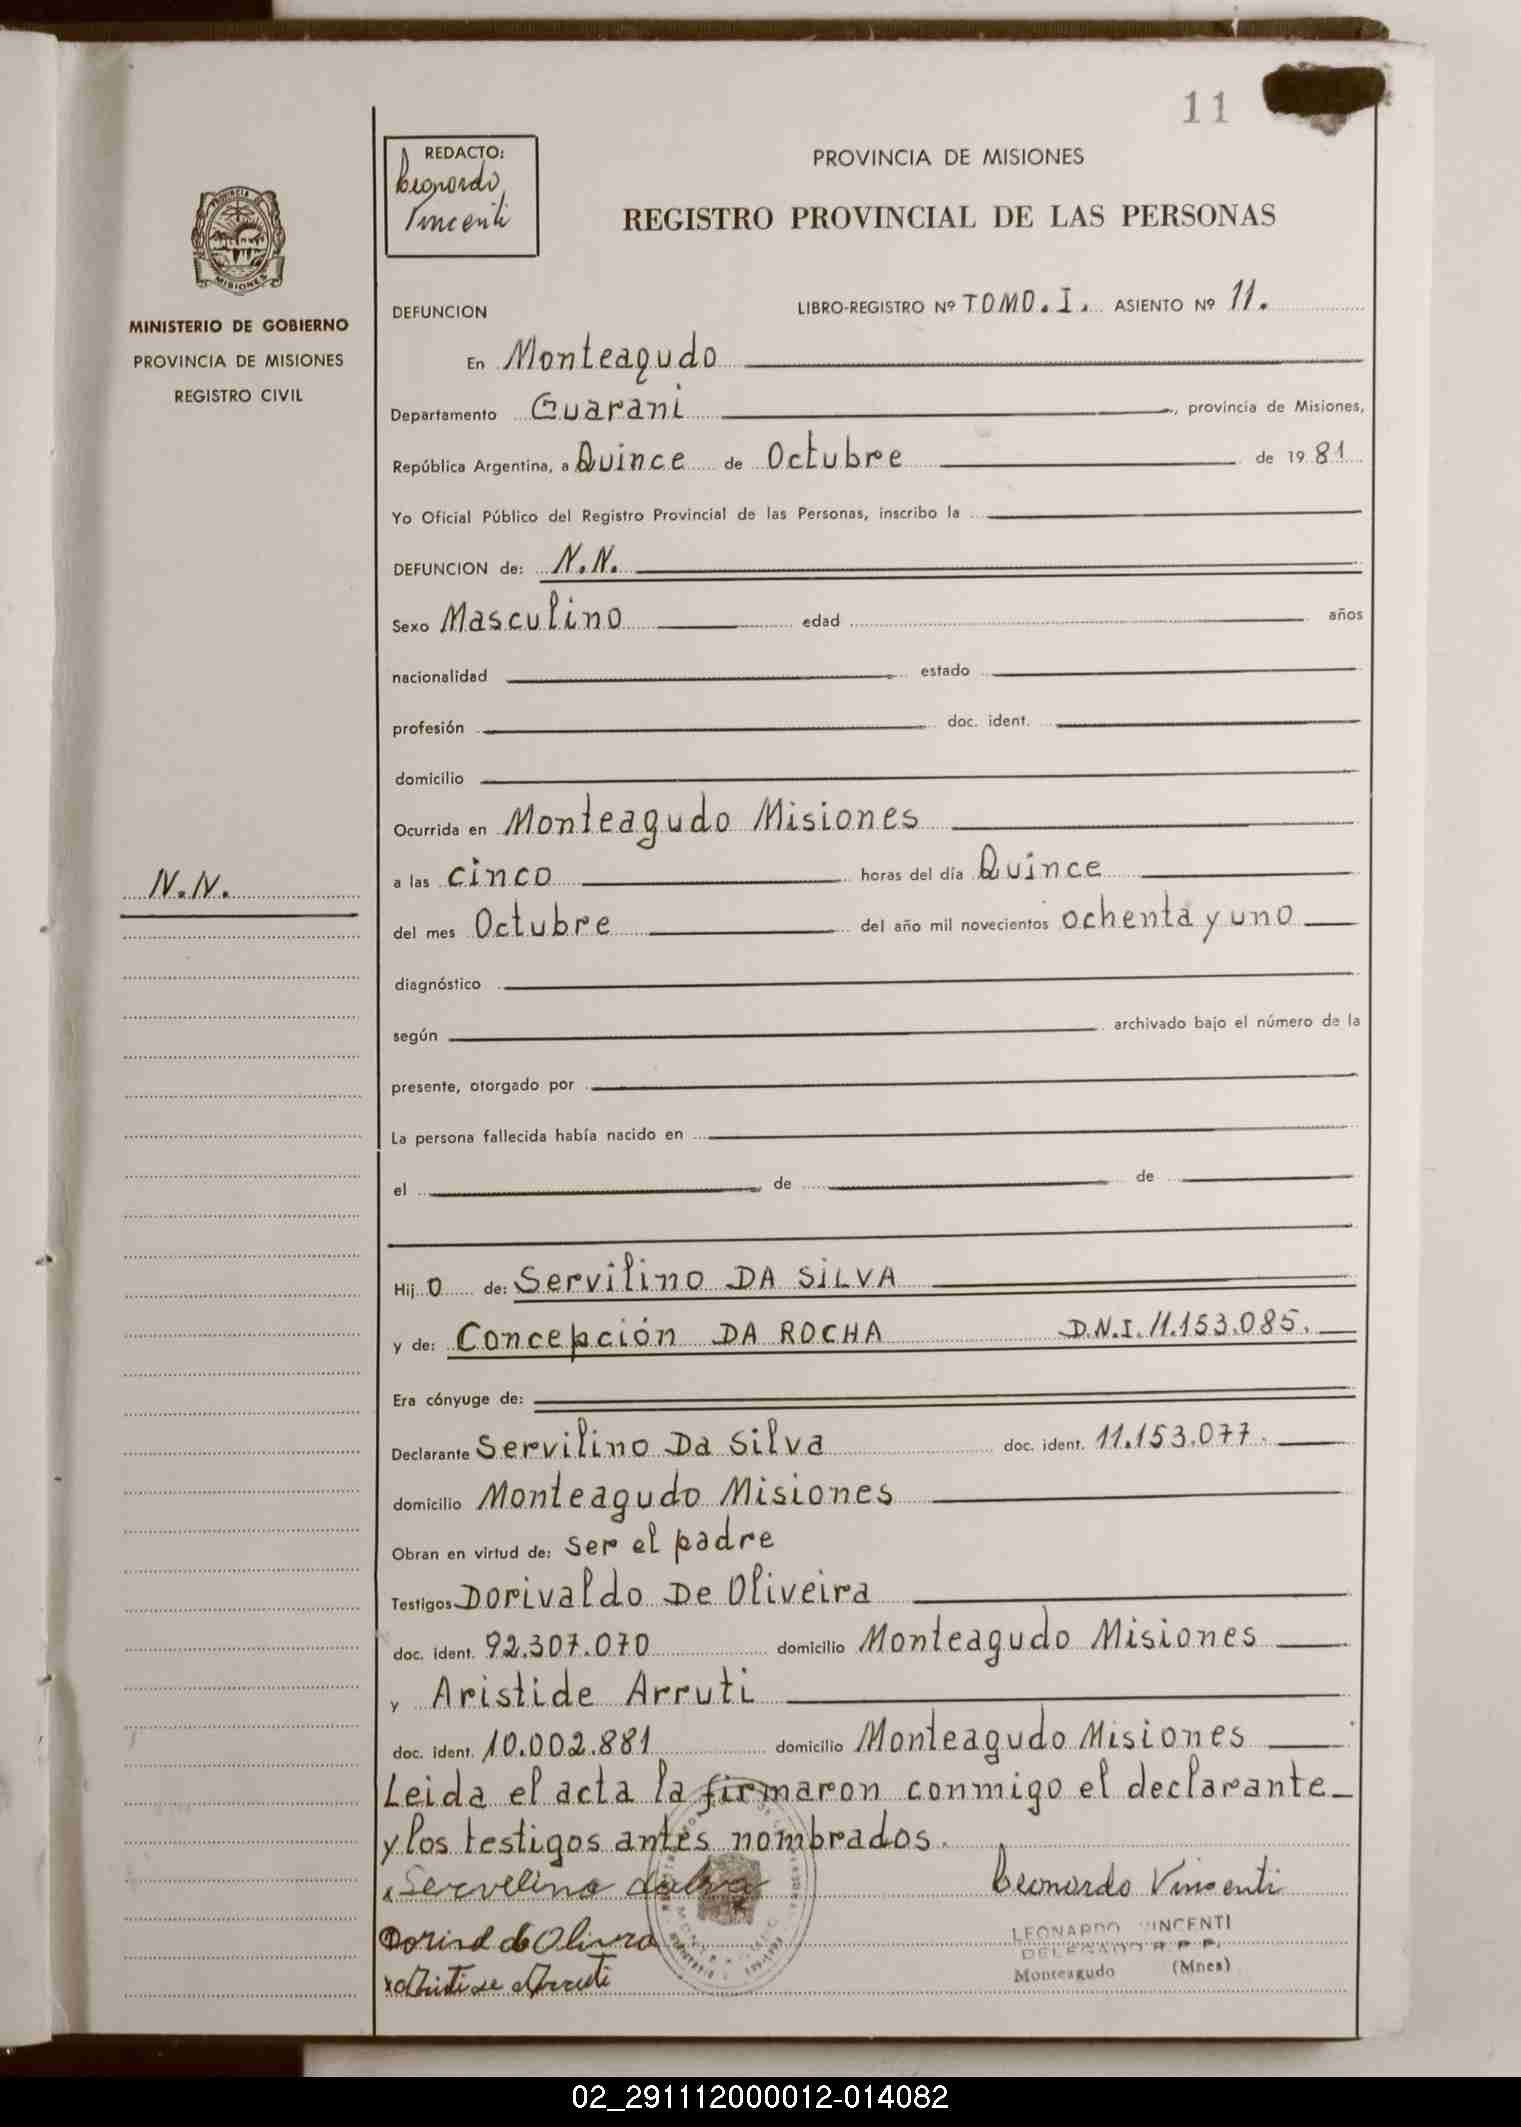 11
REDACTO:
Leonardo
Vincenti
PROVINCIA DE MISIONES
REGISTRO PROVINCIAL DE LAS PERSONAS
PROVINCIA DE
MISIONES
MINISTERIO DE GOBIERNO
PROVINCIA DE MISIONES
REGISTRO CIVIL
DEFUNCION LIBRO-REGISTRO Nº TOMO.I. ASIENTO Nº 11.
En Monteagudo
Departamento Guarani, provincia de Misiones,
República Argentina, a Quince de Octubre de 1981
Yo Oficial Público del Registro Provincial de las Personas, inscribo la
DEFUNCION de: N.N.
Sexo Masculino edad años
nacionalidad estado
profesión doc. ident.
domicilio
Ocurrida en Monteagudo Misiones
N.N.
a las cinco horas del día Quince
del mes Octubre del año mil novecientos ochenta y uno
diagnóstico
según archivado bajo el número de la
presente, otorgado por
La persona fallecida había nacido en
el de de
Hijo de: Servilino DA SILVA
y de: Concepción DA ROCHA D.N.I. 11.153.085.
Era cónyuge de:
Declarante Servilino Da Silva doc. ident. 11.153.077.
domicilio Monteagudo Misiones
Obran en virtud de: Ser el padre
Testigos Dorivaldo De Oliveira
doc. ident. 92.307.070 domicilio Monteagudo Misiones
y Aristide Arruti
doc. ident. 10.002.881 domicilio Monteagudo Misiones
Leida el acta la firmaron conmigo el declarante
y los testigos antes nombrados.
Servelino Leonardo Vincenti
LEONARDO VINCENTI
DELEGADO R.P.P.
Monteagudo (Mnes)
Arruti
02_291112000012-014082